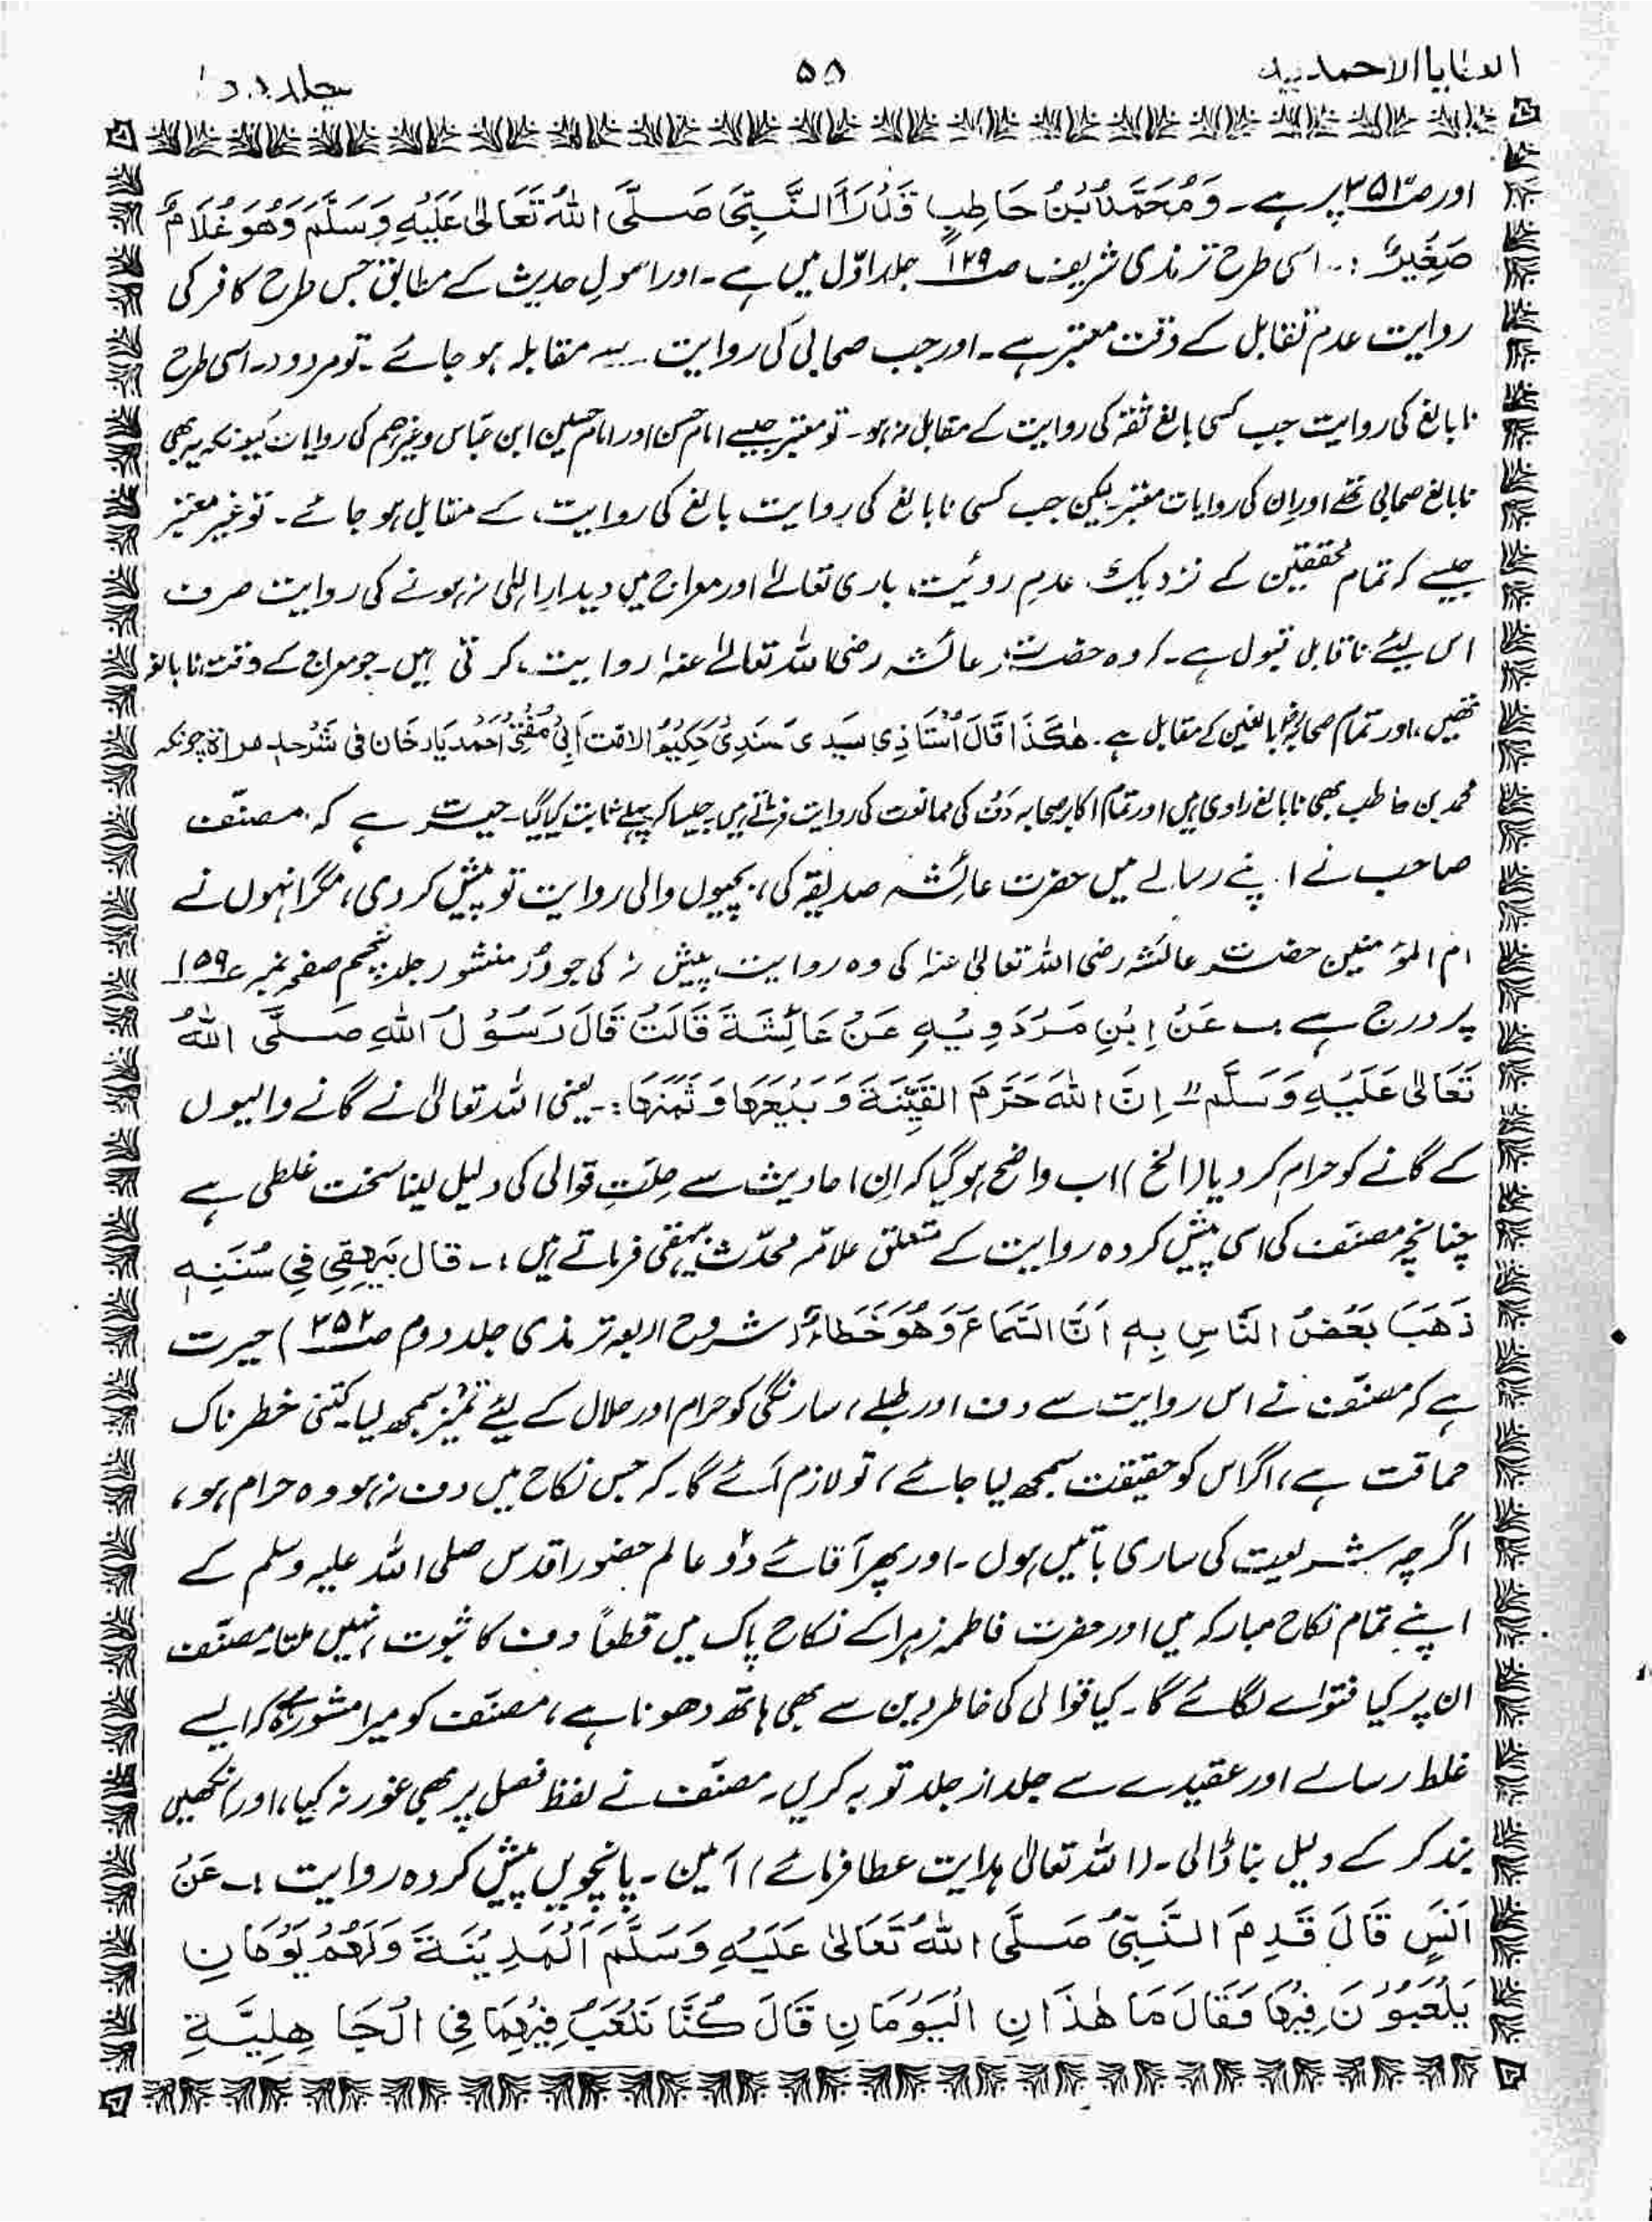 العطایا الاحمدیہ ۵۵ جلد دوم
اور ص۲۵۱ پر ہے۔ وَمُحَمَّدُ بْنُ حَاطِبٍ قَدْ رَاَ النَّبِیَّ صَلَّی اللہُ تَعَالٰی عَلَیْہِ وَسَلَّمَ وَھُوَ غُلَامٌ
صَغِیْرٌ :۔ اسی طرح ترمذی شریف ص۱۲۹ جلد اوّل میں ہے۔ اور اصولِ حدیث کے مطابق جس طرح کافر کی
روایت عدم تقابل کے وقت معتبر ہے۔ اور جب صحابی کی روایت سے مقابلہ ہو جائے۔ تو مردود۔ اسی طرح
نابالغ کی روایت جب کسی بالغ ثقہ کی روایت کے مقابل نہ ہو۔ تو معتبر جیسے امام حسن اور امام حسین ابن عباس وغیرھم کی روایات کیونکہ یہ بھی
نابالغ صحابی تھے اور ان کی روایات معتبر۔ لیکن جب کسی نابالغ کی روایت بالغ کی روایت کے مقابل ہو جائے۔ تو غیر معتبر
جیسے کہ تمام محققین کے نزدیک عدمِ روئیت باری تعالےٰ اور معراج میں دیدارِ الٰہی نہ ہونے کی روایت صرف
اس لیئے ناقابل قبول ہے۔ کہ وہ حضرت عائشہ رضی اللہ تعالےٰ عنہا روایت کرتی ہیں۔ جو معراج کے وقت نابالغ
تھیں، اور تمام صحابہ بالغین کے مقابل ہے۔ ھٰکَذَا قَالَ اُسْتَاذِی سَیِّدِی سَنَدِیْ حَکِیْمُ الامت اَبِیْ مُفْتِیْ اَحْمَد یَار خَان فی شَرْحِہٖ مراٰۃ چونکہ
محمد بن حاطب بھی نابالغ راوی ہیں اور تمام اکابر صحابہ دَف کی ممانعت کی روایت فرماتے ہیں جیسا کہ پہلے ثابت کیا گیا۔ حیرت ہے کہ مصنّف
صاحب نے اپنے رسالے میں حضرت عائشہ صدیقہ کی، بچیوں والی روایت تو پیش کر دی، مگر انہوں نے
ام المؤمنین حضرت عائشہ رضی اللہ تعالیٰ عنہا کی وہ روایت پیش نہ کی جو دُرِّ منشور جلد پنجم صفحہ نمبر ۱۵۹
پر درج ہے :۔ عَنْ اِبْنِ مَرْدَوِیْہِ عَنْ عَائِشَۃَ قَالَتْ قَالَ رَسُوْلُ اللہِ صَلَّی اللہُ
تَعَالٰی عَلَیْہِ وَسَلَّم ۔ اِنَّ اللہَ حَرَّمَ الْقَیْنَۃَ وَ بَیْعَھَا وَ ثَمَنَھَا :۔ یعنی اللہ تعالیٰ نے گانے والیوں
کے گانے کو حرام کر دیا (الخ) اب واضح ہو گیا کہ ان احادیث سے حِلّتِ قوالی کی دلیل لینا سخت غلطی ہے
چنانچہ مصنّف کی اسی پیش کردہ روایت کے متعلق علامہ محدّث بیہقی فرماتے ہیں :۔ قال بَیْہَقِی فِیْ سُنَنِہٖ
ذَھَبَ بَعْضُ النَّاسِ بِہٖ اَنَّ السَّمَاعَ وَھُوَ خَطَاءٌ (شروح اربعہ ترمذی جلد دوم ص۲۵۲) حیرت
ہے کہ مصنّف نے اس روایت سے دف اور طبلے، سارنگی کو حرام اور حلال کے لیئے تمیز سمجھ لیا۔ کتنی خطرناک
حماقت ہے، اگر اس کو حقیقت سمجھ لیا جائے، تو لازم آئے گا۔ کہ جس نکاح میں دف نہ ہو وہ حرام ہو،
اگرچہ شریعت کی ساری باتیں ہوں۔ اور پھر آقائے دو عالم حضور اقدس صلی اللہ علیہ وسلم کے
اپنے تمام نکاح مبارکہ میں اور حضرت فاطمہ زہرا کے نکاح پاک میں قطعاً دف کا ثبوت نہیں ملتا۔ مصنّف
ان پر کیا فتوٰے لگائے گا۔ کیا قوالی کی خاطر دین سے بھی ہاتھ دھونا ہے، مصنّف کو میرا مشورہ ہے کہ ایسے
غلط رسالے اور عقیدے سے جلد از جلد توبہ کریں۔ مصنّف نے لفظ فصل پر بھی غور نہ کیا، اور آنکھیں
بند کر کے دلیل بنا ڈالی۔ (اللہ تعالیٰ ہدایت عطا فرمائے) آمین۔ پانچویں پیش کردہ روایت :۔ عَنْ
اَنَسٍ قَالَ قَدِمَ النَّبِیُّ صَلَّی اللہُ تَعَالٰی عَلَیْہِ وَسَلَّمَ الْمَدِیْنَۃَ وَلَھُمْ یَوْمَانِ
یَلْعَبُوْنَ فِیْھَا فَقَالَ مَا ھٰذَانِ الْیَوْمَانِ قَالَ کُنَّا نَلْعَبُ فِیْھِمَا فِی الْجَاھِلِیَّۃِ